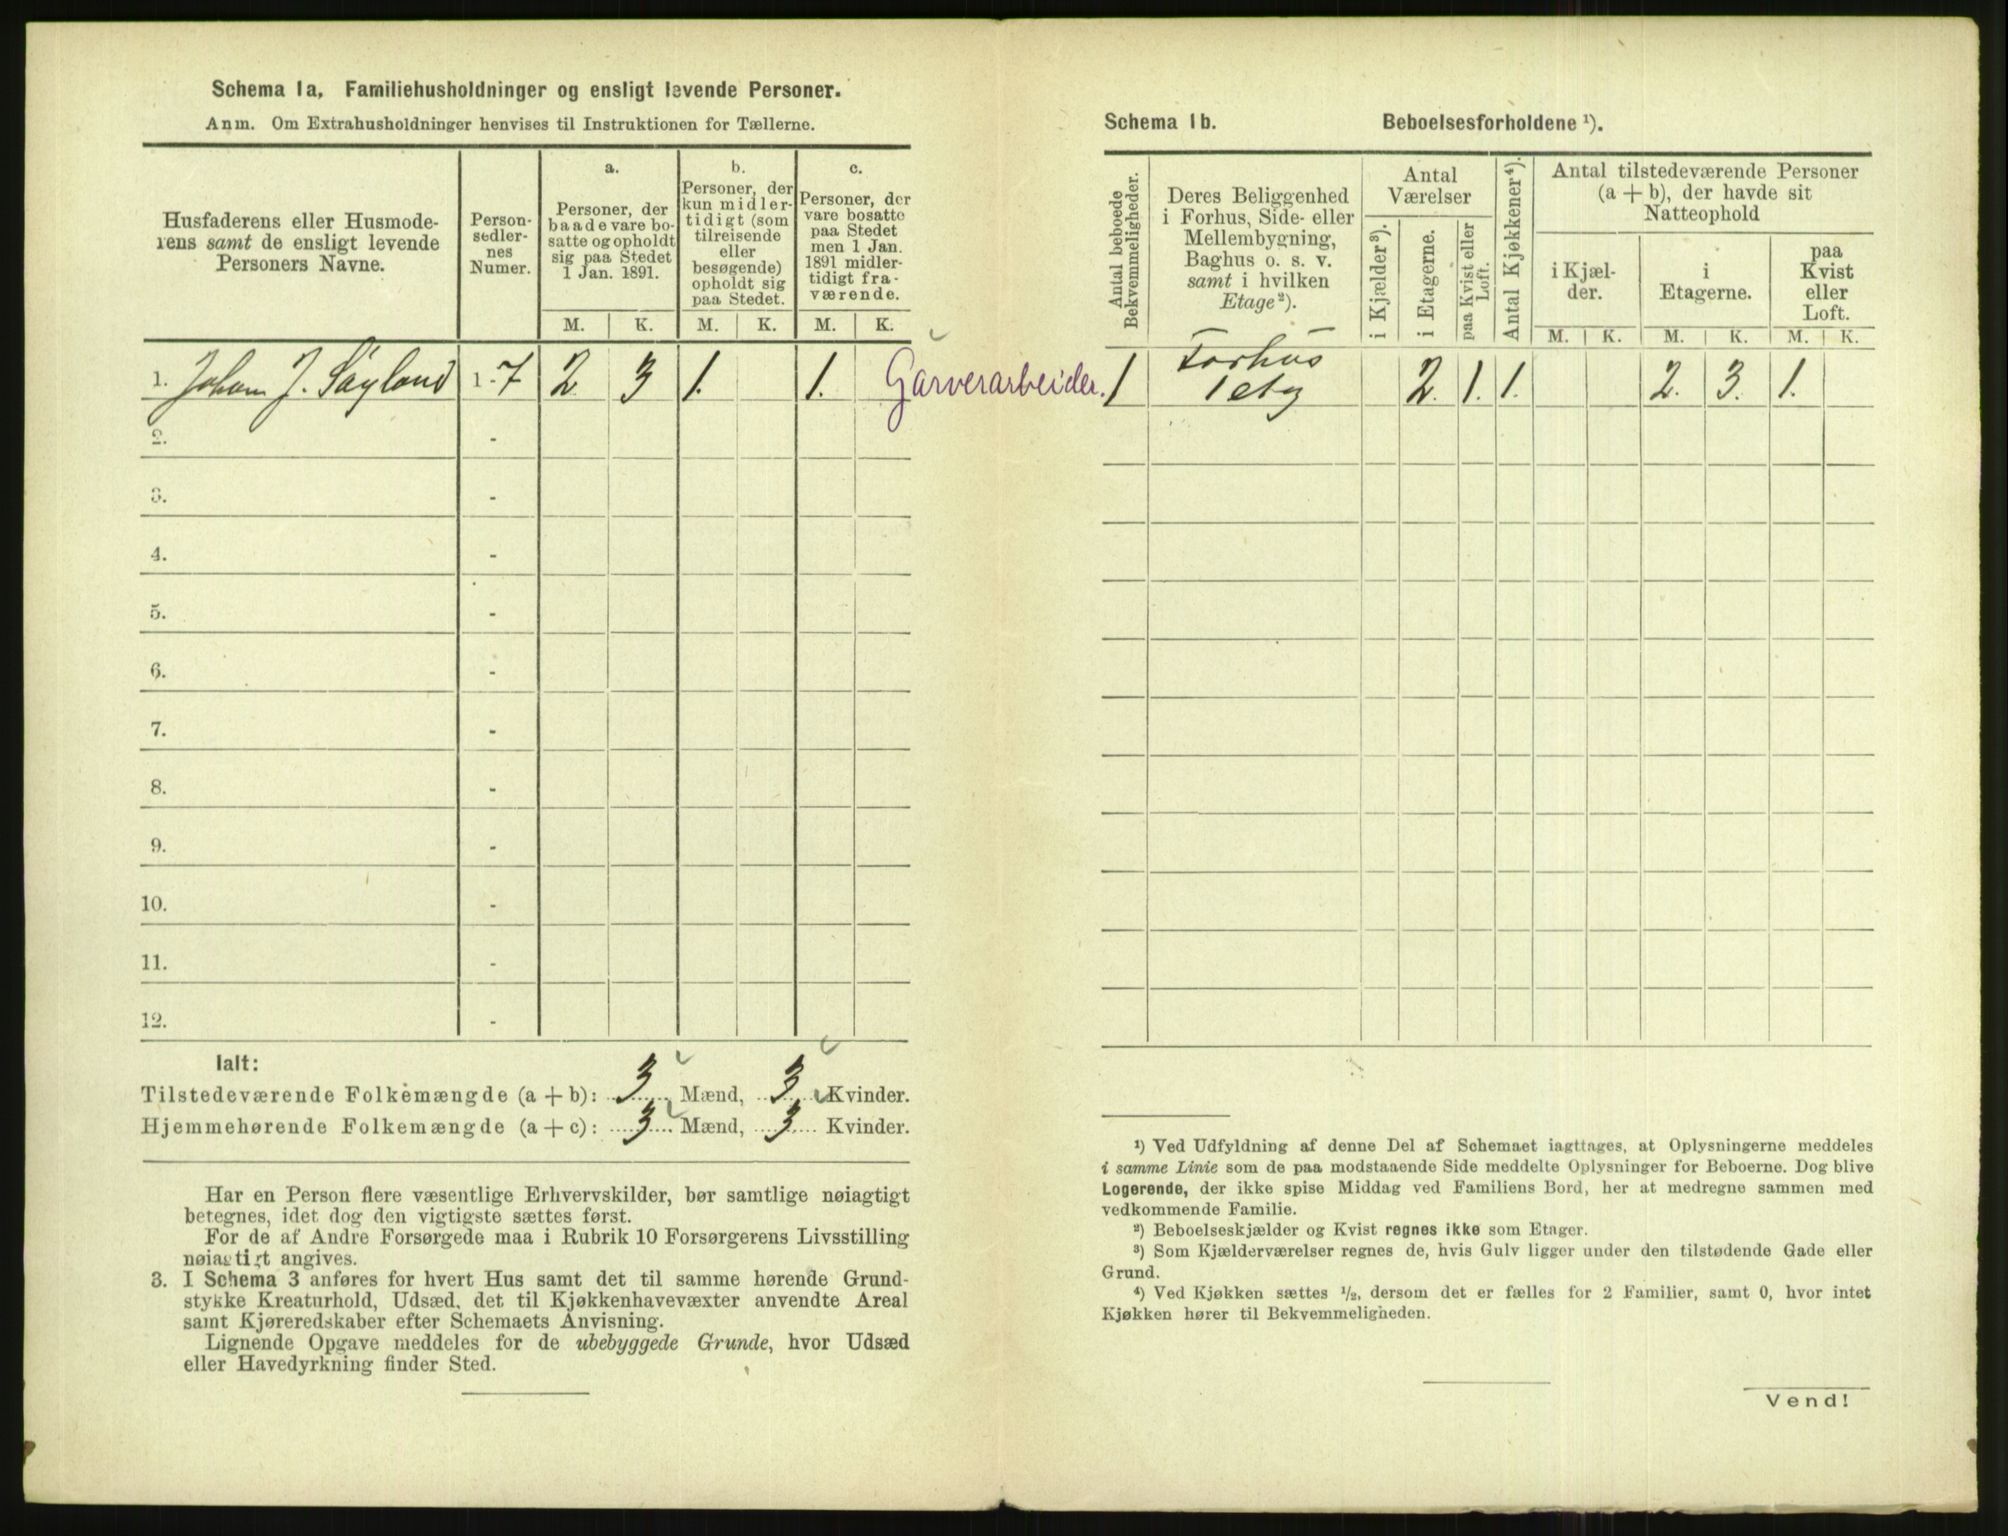 Schema 1a. Familiehusholdninger og ensligt levende Personer.
Anm. Om Extrahusholdninger henvises til Instruktionen for Tællerne.
Husfaderens eller Husmode-
rens samt de ensligt levende
Personers Navne.
Person-
sedler-
nes
Numer.
a.
Personer, der
baade vare bo-
satte og opholdt
sig paa Stedet
1 Jan. 1891.
b.
Personer, der
kun midler-
tidigt (som
tilreisende
eller
besøgende)
opholdt sig
paa Stedet.
c.
Personer, der
vare bosatte
paa Stedet
men 1 Jan.
1891 midler-
tidigt fra-
værende.
M. K. M. K. M. K.
1. Johan J. 1-7 2 3 1. 1. Garverarbeider.
2. -
3. -
4. -
5. -
6. -
7. -
8. -
9. -
10. -
11. -
12. -
Ialt:
Tilstedeværende Folkemængde (a + b): 3 Mænd, 3 Kvinder.
Hjemmehørende Folkemængde (a + c): 3 Mænd, 3 Kvinder.
Har en Person flere væsentlige Erhvervskilder, bør samtlige nøiagtigt
betegnes, idet dog den vigtigste sættes først.
For de af Andre Forsørgede maa i Rubrik 10 Forsørgerens Livsstilling
nøiagtigt angives.
3. I Schema 3 anføres for hvert Hus samt det til samme hørende Grund-
stykke Kreaturhold, Udsæd, det til Kjøkkenhavevæxter anvendte Areal
samt Kjøreredskaber efter Schemaets Anvisning.
Lignende Opgave meddeles for de ubebyggede Grunde, hvor Udsæd
eller Havedyrkning finder Sted.
Schema 1b. Beboelsesforholdene ¹).
Antal beboede
Bekvemmeligheder.
Deres Beliggenhed
i Forhus, Side- eller
Mellembygning,
Baghus o. s. v.
samt i hvilken
Etage²).
Antal
Værelser
i Kjælder³).
i Etagerne.
paa Kvist eller
Loft.
Antal Kjøkkener⁴).
Antal tilstedeværende Personer
(a + b), der havde sit
Natteophold
i Kjæl-
der.
i
Etagerne.
paa
Kvist
eller
Loft.
M. K. M. K. M. K.
1 Forhus
1 etg 2. 1. 1. 2. 3. 1.
¹) Ved Udfyldning af denne Del af Schemaet iagttages, at Oplysningerne meddeles
i samme Linie som de paa modstaaende Side meddelte Oplysninger for Beboerne. Dog blive
Logerende, der ikke spise Middag ved Familiens Bord, her at medregne sammen med
vedkommende Familie.
²) Beboelseskjælder og Kvist regnes ikke som Etager.
³) Som Kjælderværelser regnes de, hvis Gulv ligger under den tilstødende Gade eller
Grund.
⁴) Ved Kjøkken sættes ½, dersom det er fælles for 2 Familier, samt 0, hvor intet
Kjøkken hører til Bekvemmeligheden.
Vend!